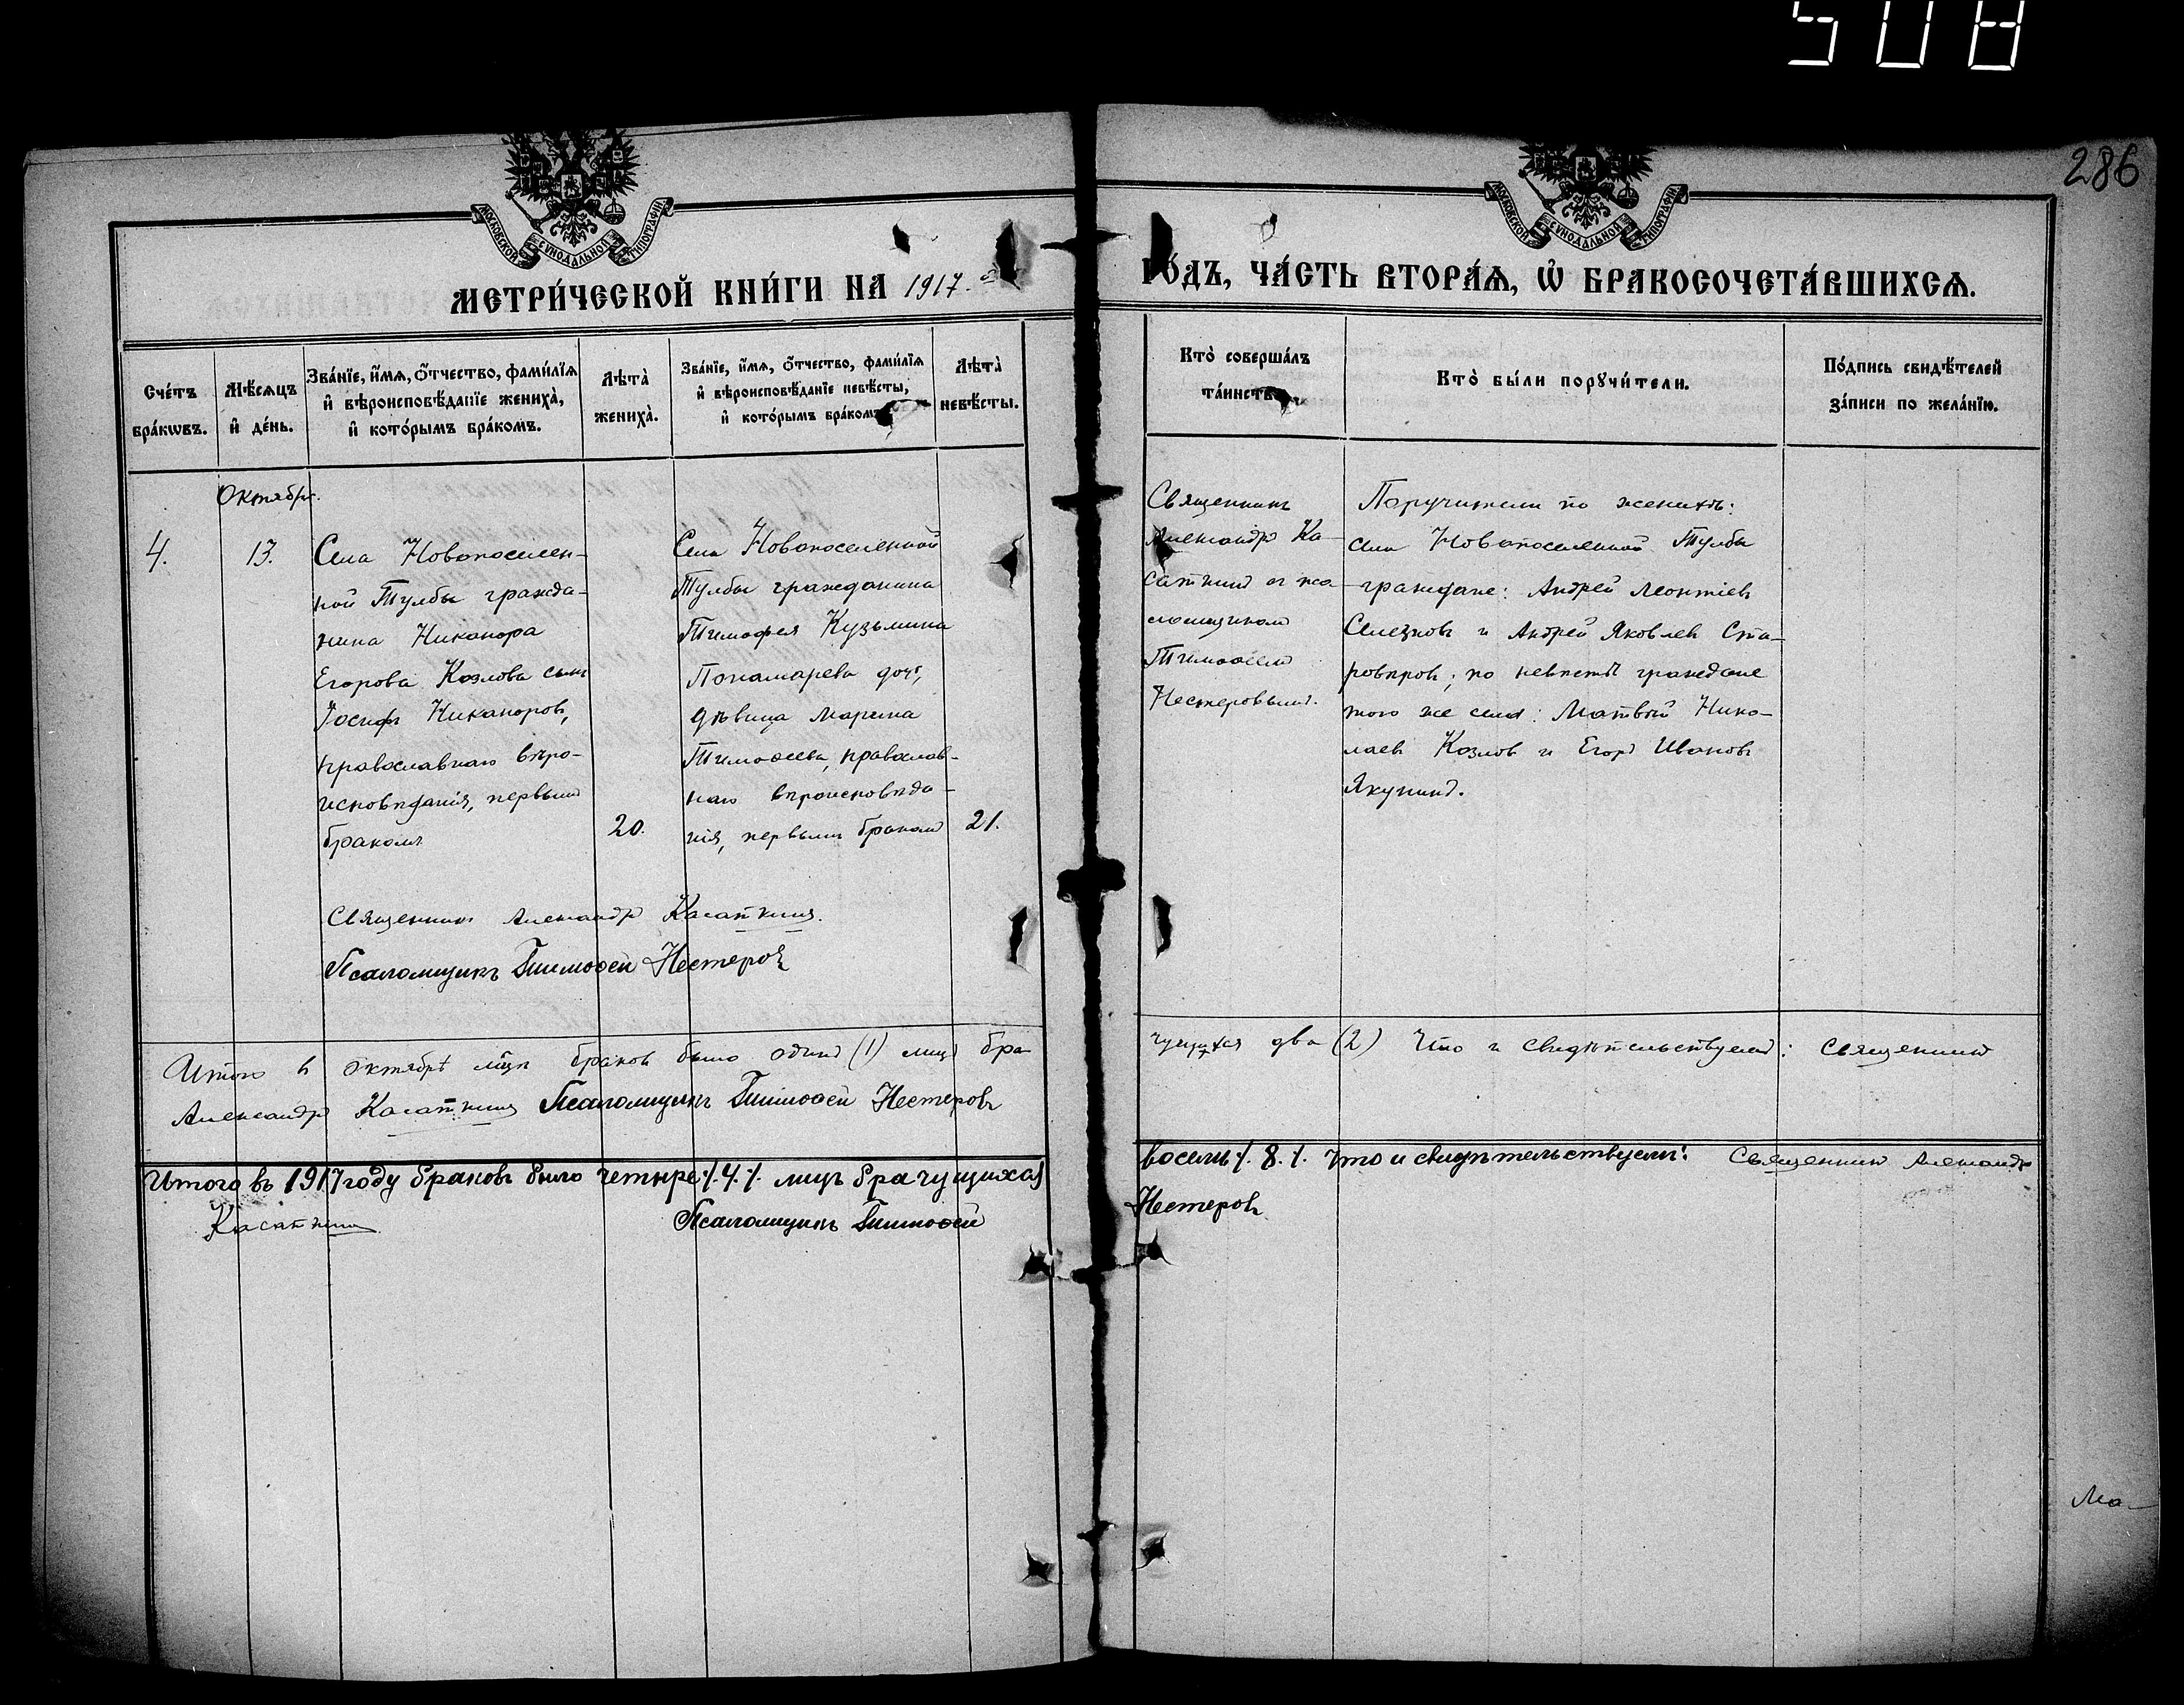 508
286
МОСКОВСКОЙ СѴНОДАЛЬНОЙ ТИПОГРАФІИ
МОСКОВСКОЙ СѴНОДАЛЬНОЙ ТИПОГРАФІИ
МЕТРИ́ЧЕСКОЙ КНИ́ГИ НА 1917.
ГО́ДЪ, ЧА́СТЬ ВТОРА́Ѧ, Ѡ҆ БРАКОСОЧЕТА́ВШИХСѦ.
Сче́тъ бра́кѡвъ.
Мѣ́сѧцъ и҆ де́нь.
Зва́нїе, и҆́мѧ, ѻ҆́тчество, фами́лїѧ
и҆ вѣроисповѣ́данїе жениха̀,
и҆ кото́рымъ бра́комъ.
Лѣта̀ жениха̀.
Зва́нїе, и҆́мѧ, ѻ҆́тчество, фами́лїѧ
и҆ вѣроисповѣ́данїе невѣ́сты,
и҆ кото́рымъ бра́комъ
Лѣта̀ невѣ́сты.
Кто̀ соверша́лъ
та́инство
Кто̀ бы́ли порꙋчи́тели.
По́дпись свидѣ́телей
за́писи по жела́нїю.
Октябрь.
4.
13.
Села Новопоселен-
ной Тулбы гражда-
нина Никанора
Егорова Козлова сынъ
Іосифъ Никаноровъ,
православнаго вѣро-
исповѣданія, первымъ
бракомъ
20.
Села Новопоселенной
Тулбы гражданина
Тимофея Кузьмина
Пономарева дочь,
дѣвица Марина
Тимоѳеева, православ-
наго вѣроисповѣда-
нія, первымъ бракомъ
21.
Священникъ
Александръ Ка-
саткинъ съ пса-
ломщикомъ
Тимоѳеемъ
Нестеровымъ.
Поручители по женихѣ:
села Новопоселенной Тулбы
граждане: Андрей Леонтіевъ
Селезновъ и Андрей Яковлевъ Ста-
ровѣровъ; по невѣстѣ граждане
того же села: Матвѣй Нико-
лаевъ Козловъ и Егоръ Ивановъ
Якунинъ.
Священникъ Александръ Касаткинъ.
Псаломщикъ Тимоѳей Нестеровъ
Итого въ октябрѣ мѣсцѣ браковъ было одинъ (1) лицъ бра-
чущихся два (2) Что и свидѣтельствуемъ: Священникъ
Александръ Касаткинъ Псаломщикъ Тимоѳей Нестеровъ
Итого въ 1917 году браковъ было четыре ./. 4 ./. лицъ брачущихся
восемь ./. 8 ./. Что и свидѣтельствуемъ: Священникъ Александръ
Касаткинъ Псаломщикъ Тимоѳей
Нестеровъ
Ма-